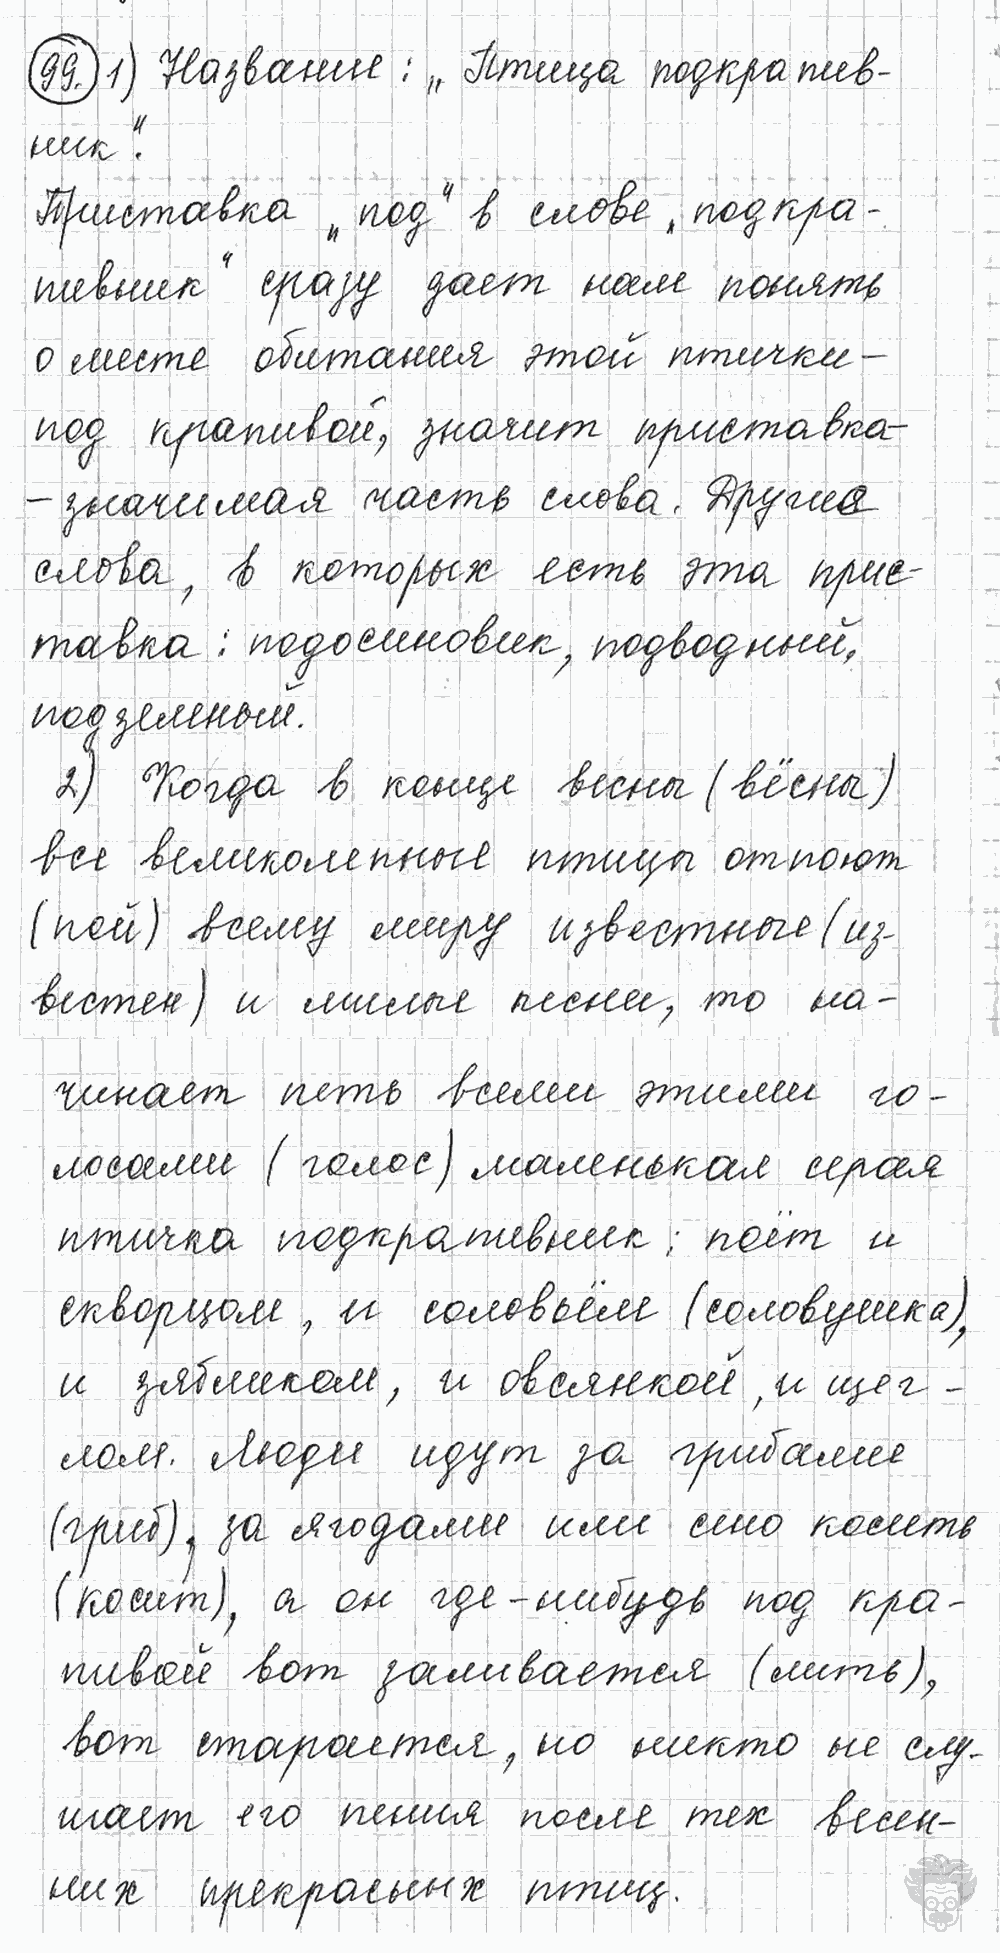 99. 1) Название: „Птица подкрапив-
ник“.
Приставка „под“ в слове „подкра-
пивник“ сразу дает нам понять
о месте обитания этой птички –
под крапивой, значит приставка –
– значимая часть слова. Другие
слова, в которых есть эта прис-
тавка: подосиновик, подводный,
подземный.
2) Когда в конце весны (вёсны)
все великолепные птицы отпоют
(пой) всему миру известные (из-
вестен) и милые песни, то на-
чинает петь всеми этими го-
лосами (голос) маленькая серая
птичка подкрапивник: поёт и
скворцом, и соловьём (соловушка),
и зябликом, и овсянкой, и щег-
лом. Люди идут за грибами
(гриб), за ягодами или сено косить
(косит), а он где-нибудь под кра-
пивой вот заливается (лить),
вот старается, но никто не слу-
шает его пения после тех весен-
них прекрасных птиц.